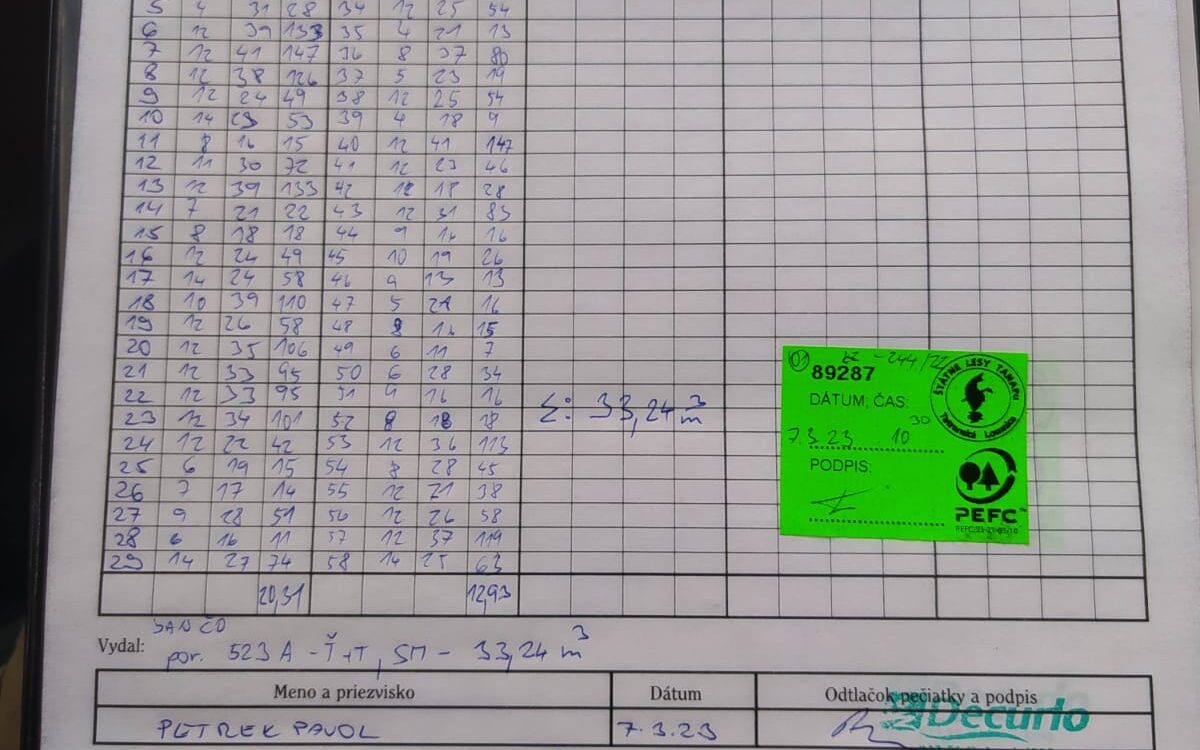 5 4 31 28 34 12 25 54
6 12 39 133 35 4 21 13
7 12 41 147 36 8 37 80
8 12 38 126 37 5 23 19
9 12 24 49 38 12 25 54
10 14 23 53 39 4 18 9
11 8 16 15 40 12 41 147
12 11 30 72 41 12 23 46
13 12 39 133 42 18 28
14 7 21 22 43 12 31 83
15 8 18 18 44 9 16 16
16 12 24 49 45 10 19 26
17 14 24 58 46 9 13 13
18 10 39 110 47 5 21 16
19 12 26 58 48 8 16 15
20 12 35 106 49 6 11 7
21 12 33 95 50 6 28 34
22 12 33 95 51 9 16 16
23 12 34 101 52 8 18 18
24 12 22 42 53 12 36 113
25 6 19 15 54 8 28 45
26 7 17 14 55 12 21 38
27 9 28 51 56 12 26 58
28 6 16 11 57 12 37 119
29 14 27 74 58 14 25 63
20,31 12,93
Σ: 33,24 m³
01 -244/22
89287
DÁTUM; ČAS:
7.3.23 10 30
PODPIS:
ŠTÁTNE LESY TANAPU
Tatranská Lomnica
PEFC™
SAN ČD
Vydal: por. 523 A - Ť+T, SM - 33,24 m³
Meno a priezvisko Dátum Odtlačok pečiatky a podpis
PETREK PAVOL 7.3.23
Decurio